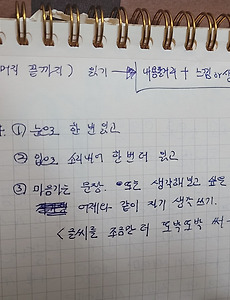 끝까지) 읽기 → 내용불러주기 + 느낌이나 생
① 눈으로 한 번 읽고
② 입으로 소리내어 한 번 더 읽고
③ 마음가는 문장. 또는 생각해보고 싶은
어제와 같이 적기 생각 쓰기.
< 글씨를 조금만 더 또박또박 써